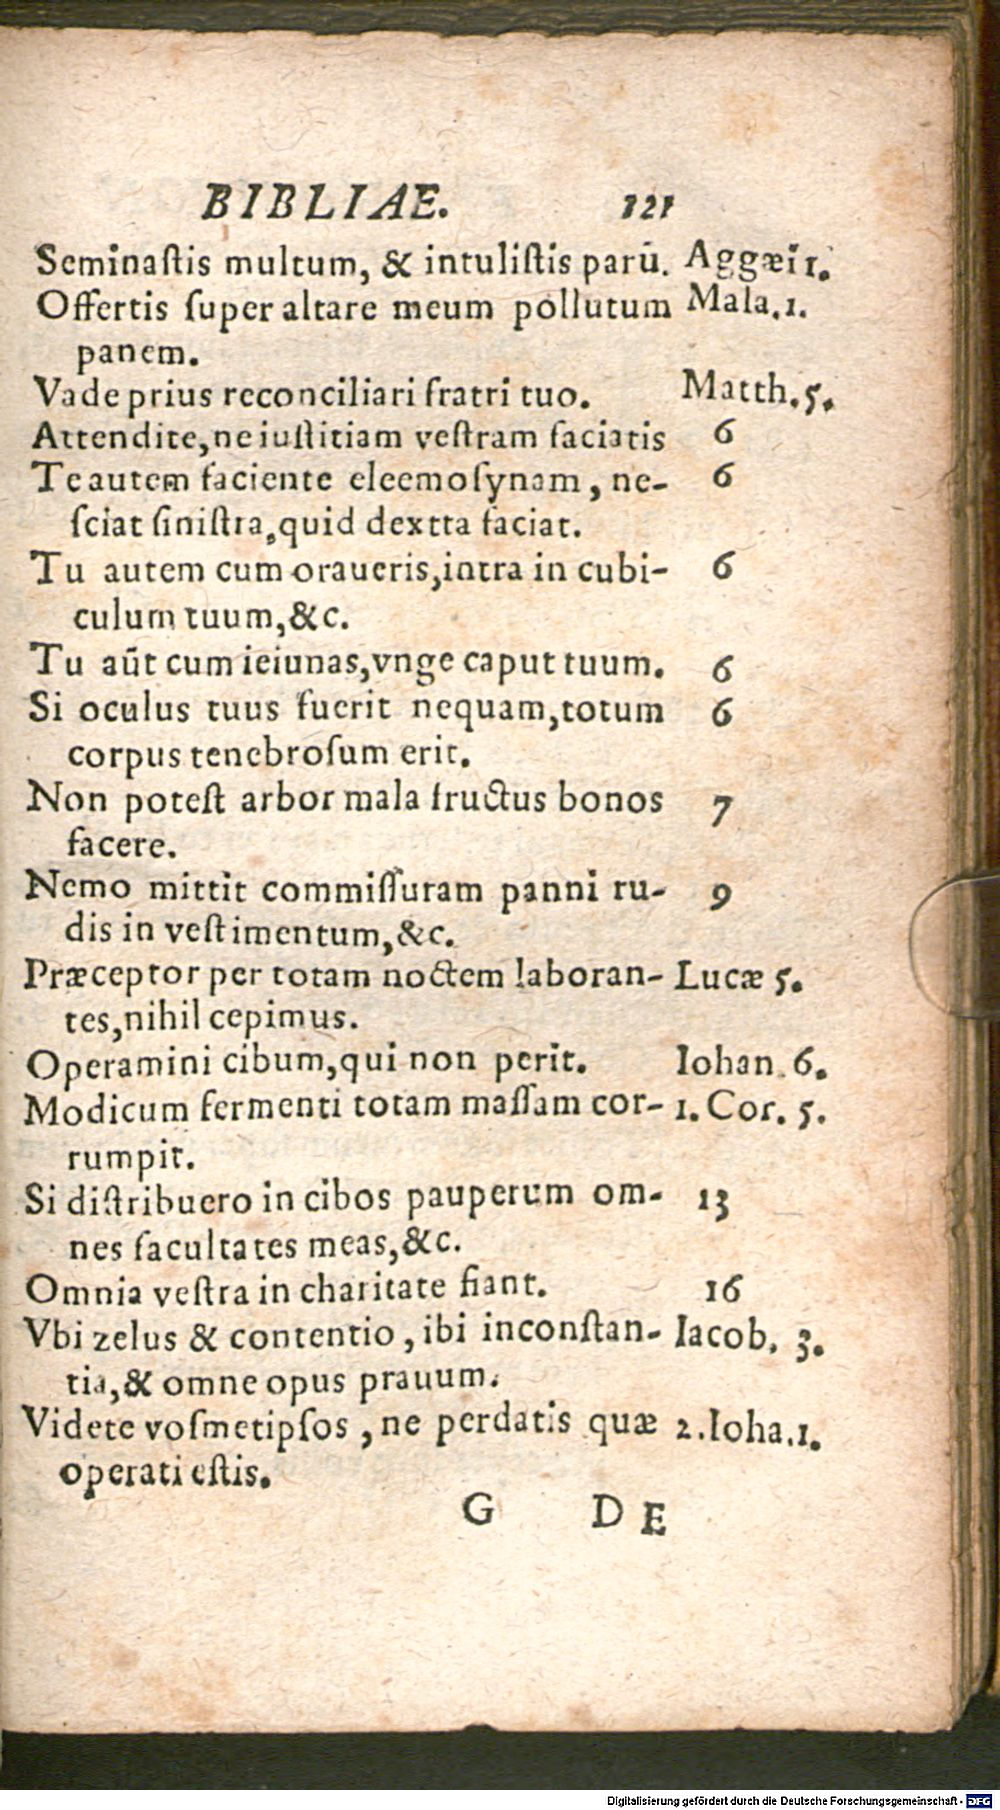 BIBLIAE. 121
Seminaſtis multum, & intuliſtis parū. Aggæi 1.
Offertis ſuper altare meum pollutum Mala.1.
panem.
Vade prius reconciliari fratri tuo. Matth.5.
Attendite,ne iuſtitiam veſtram faciatis 6
Te autem faciente eleemoſynam, ne- 6
ſciat ſiniſtra,quid dextta faciat.
Tu autem cum oraueris,intra in cubi- 6
culum tuum,&c.
Tu aūt cum ieiunas,vnge caput tuum. 6
Si oculus tuus fuerit nequam,totum 6
corpus tenebroſum erit.
Non poteſt arbor mala fructus bonos 7
facere.
Nemo mittit commiſſuram panni ru- 9
dis in veſtimentum,&c.
Præceptor per totam noctem laboran- Lucæ 5.
tes,nihil cepimus.
Operamini cibum,qui non perit. Iohan.6.
Modicum fermenti totam maſſam cor- 1. Cor. 5.
rumpit.
Si diſtribuero in cibos pauperum om- 13
nes facultates meas,&c.
Omnia veſtra in charitate fiant. 16
Vbi zelus & contentio, ibi inconſtan- Iacob. 3.
tia,& omne opus prauum.
Videte voſmetipſos, ne perdatis quæ 2.Ioha.1.
operati eſtis.
G DE
Digitalisierung gefördert durch die Deutsche Forschungsgemeinschaft - DFG